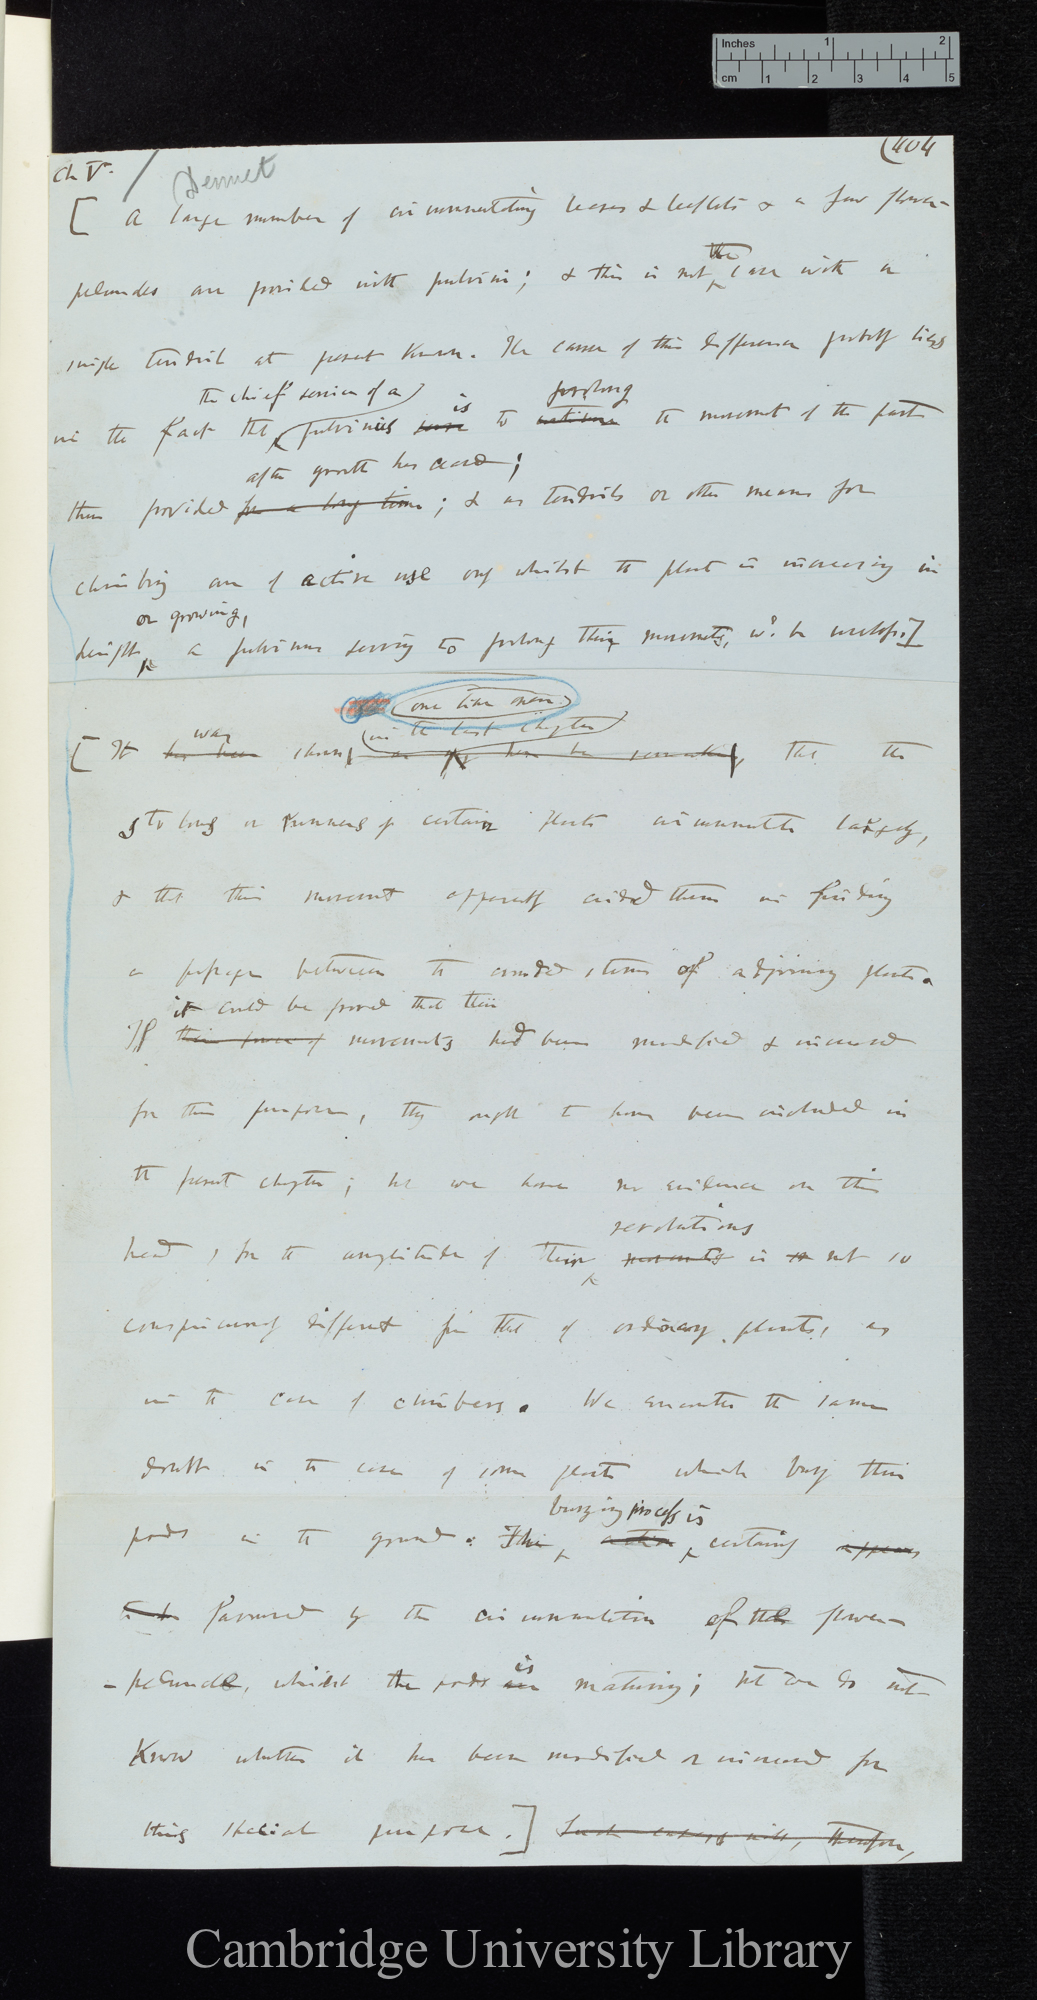 Inches 1 2
cm 1 2 3 4 5
Ch V.
Dennet
(404
[ A large number of circumnutating leaves & leaflets & a few flower-
the
peduncles are provided with pulvini; & this is not case with a
single tendril at present known. The cause of this difference probably lies
the chief service of a is prolong
in the fact that pulvinus to continue the movement of the part
after growth has ceased;
thus provided for a long time; & as tendrils or other means for
climbing are of active use only whilst the plant is increasing in
or growing,
height, a pulvinus serving to prolong their movements, wd. be useless.]
one line more
in the last chapter
was
[ It has been shown, as may here be remarked, that the
stolons or runners of certain plants circumnutate largely,
& that this movement apparently aided them in finding
a passage between the crowded stems of adjoining plants.
it could be proved that their
If movements had been modified & increased
for this purpose, they ought to have been included in
the present chapter; but we have no evidence on this
revolutions
head, for the amplitude of their movements is not so
conspicuously different from that of ordinary plants, as
in the case of climbers. We encounter the same
doubt in the case of some plants which bury their
burying process is
pods in the ground. This action certainly appears
to be favoured by the circumnutation of the flower-
is
-peduncle, whilst the pods are maturing; but we do not
know whether it has been modified or increased for
this special purpose.] Such cases will, therefore,
Cambridge University Library